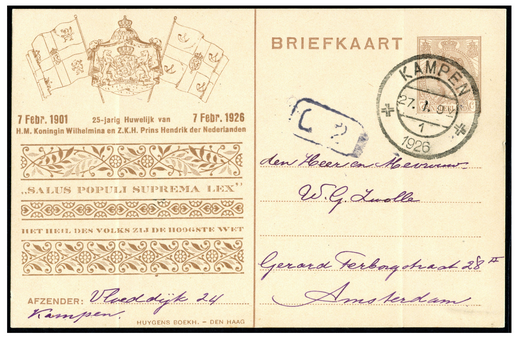 BRIEFKAART
KAMPEN
27. 1. 9
1
1926
7 Febr. 1901 25-jarig Huwelijk van 7 Febr. 1926
H.M. Koningin Wilhelmina en Z.K.H. Prins Hendrik der Nederlanden
„SALUS POPULI SUPREMA LEX"
HET HEIL DES VOLKS ZIJ DE HOOGSTE WET
AFZENDER: Vloeddijk 24
Kampen.
HUYGENS BOEKH. – DEN HAAG
C 2
den Heer en Mevrouw
W.G. Zwolle
Gerard Terborgstraat 28 II
Amsterdam